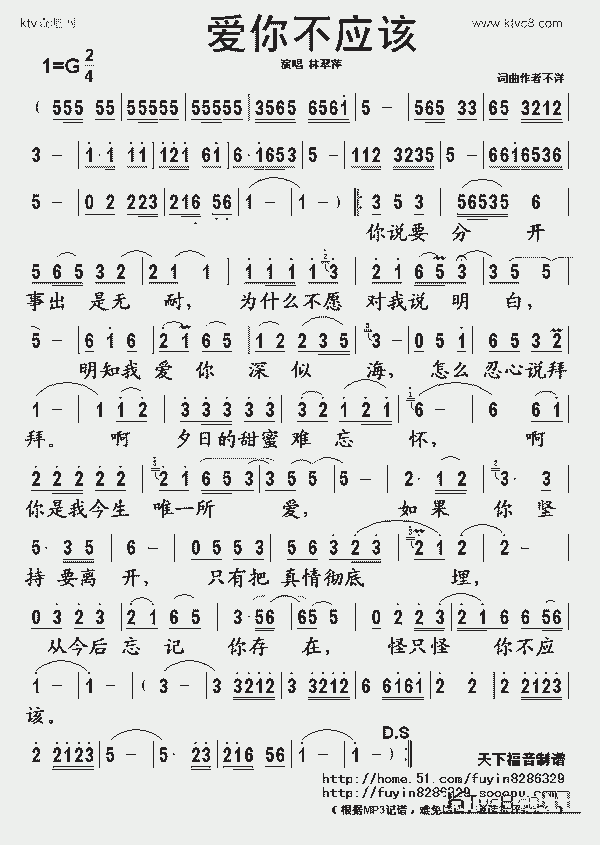 www.ktvc8.com
爱你不应该
1=G 2/4
演唱 林翠萍
词曲作者不洋
( 555 55 | 55555 55555 | 3565 6561 | 5 – | 565 33 | 65 3212 |
3 – | 1·1 11 | 121 61 | 6·1653 | 5 – | 112 3235 | 5 – | 6616536 |
5 – | 02 223 | 216 56 | 1 – | 1 – ) | 3 5 3 | 56535 6 |
你说要 分 开
5 65 32 | 2 21 1 | 1 1 1 1 3 | 21 653 | 35 5 |
事出 是无 耐， 为什么不愿 对我说 明 白，
5 – | 6 16 | 21 65 | 12 235 | 3 – | 051 | 6532 |
明知我 爱 你 深 似 海， 怎么 忍心说拜
1 – | 1 12 | 3 3 3 3 | 32 121 | 6 – | 6 61 |
拜。 啊 夕日的甜蜜 难 忘 怀， 啊
2 2 2 2 | 21 653 | 35 5 | 5 – | 2·12 | 3·3 |
你是我今生 唯一所 爱， 如 果 你 坚
5·35 | 6 – | 0553 | 56 323 | 21 2 | 2 – |
持 要离 开， 只有把 真情彻底 埋，
0323 | 21 65 | 3·56 655 | 5 – | 02 23 | 21 6 6 56 |
从今后 忘 记 你存 在， 怪只怪 你不应
1 – | 1 – | ( 3·3 | 3212 3212 | 6 6161 | 2 2 | 2 2123 |
该。
D.S
2 2123 | 5 – | 5· 23 | 216 56 | 1 – | 1 – ) :|
天下福音制谱
http://home.51.com/fuyin8286329